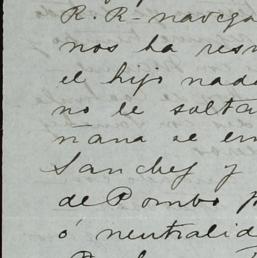 R. R- navega
nos ha res
el hijo nad
no le solta
ñana se em
Sanchez y
de Pombo
ó neutralid